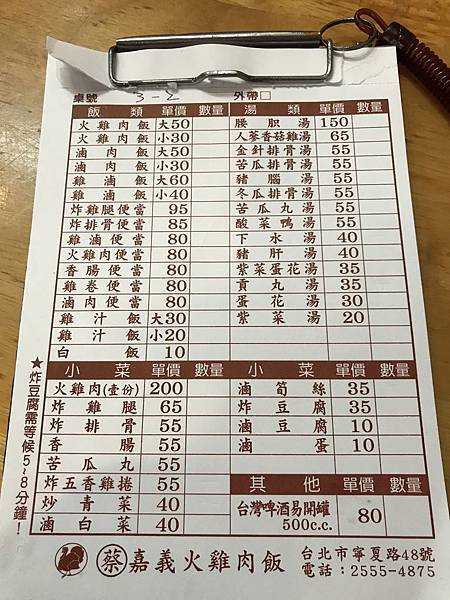 桌號 3-2 外帶□
飯類 單價 數量 湯類 單價 數量
火雞肉飯 大50 腰胑湯 150
火雞肉飯 小30 人蔘香菇雞湯 65
滷肉飯 大50 金針排骨湯 55
滷肉飯 小30 苦瓜排骨湯 55
雞滷飯 大60 豬腦湯 55
雞滷飯 小40 冬瓜排骨湯 55
炸雞腿便當 95 苦瓜丸湯 55
炸排骨便當 85 酸菜鴨湯 55
雞滷便當 80 下水湯 40
火雞肉便當 80 豬肝湯 40
香腸便當 80 紫菜蛋花湯 35
雞卷便當 80 貢丸湯 35
滷肉便當 80 蛋花湯 30
雞汁飯 大30 紫菜湯 20
雞汁飯 小20
白飯 10
小菜 單價 數量 小菜 單價 數量
火雞肉(壹份) 200 滷筍絲 35
炸雞腿 65 炸豆腐 35
炸排骨 55 滷豆腐 10
香腸 55 滷蛋 10
苦瓜丸 55
炸五香雞捲 55 其他 單價 數量
炒青菜 40 台灣啤酒易開罐 80
滷白菜 40 500c.c.
★炸豆腐需等候5~8分鐘！
蔡 嘉義火雞肉飯 台北市寧夏路48號
電話：2555-4875